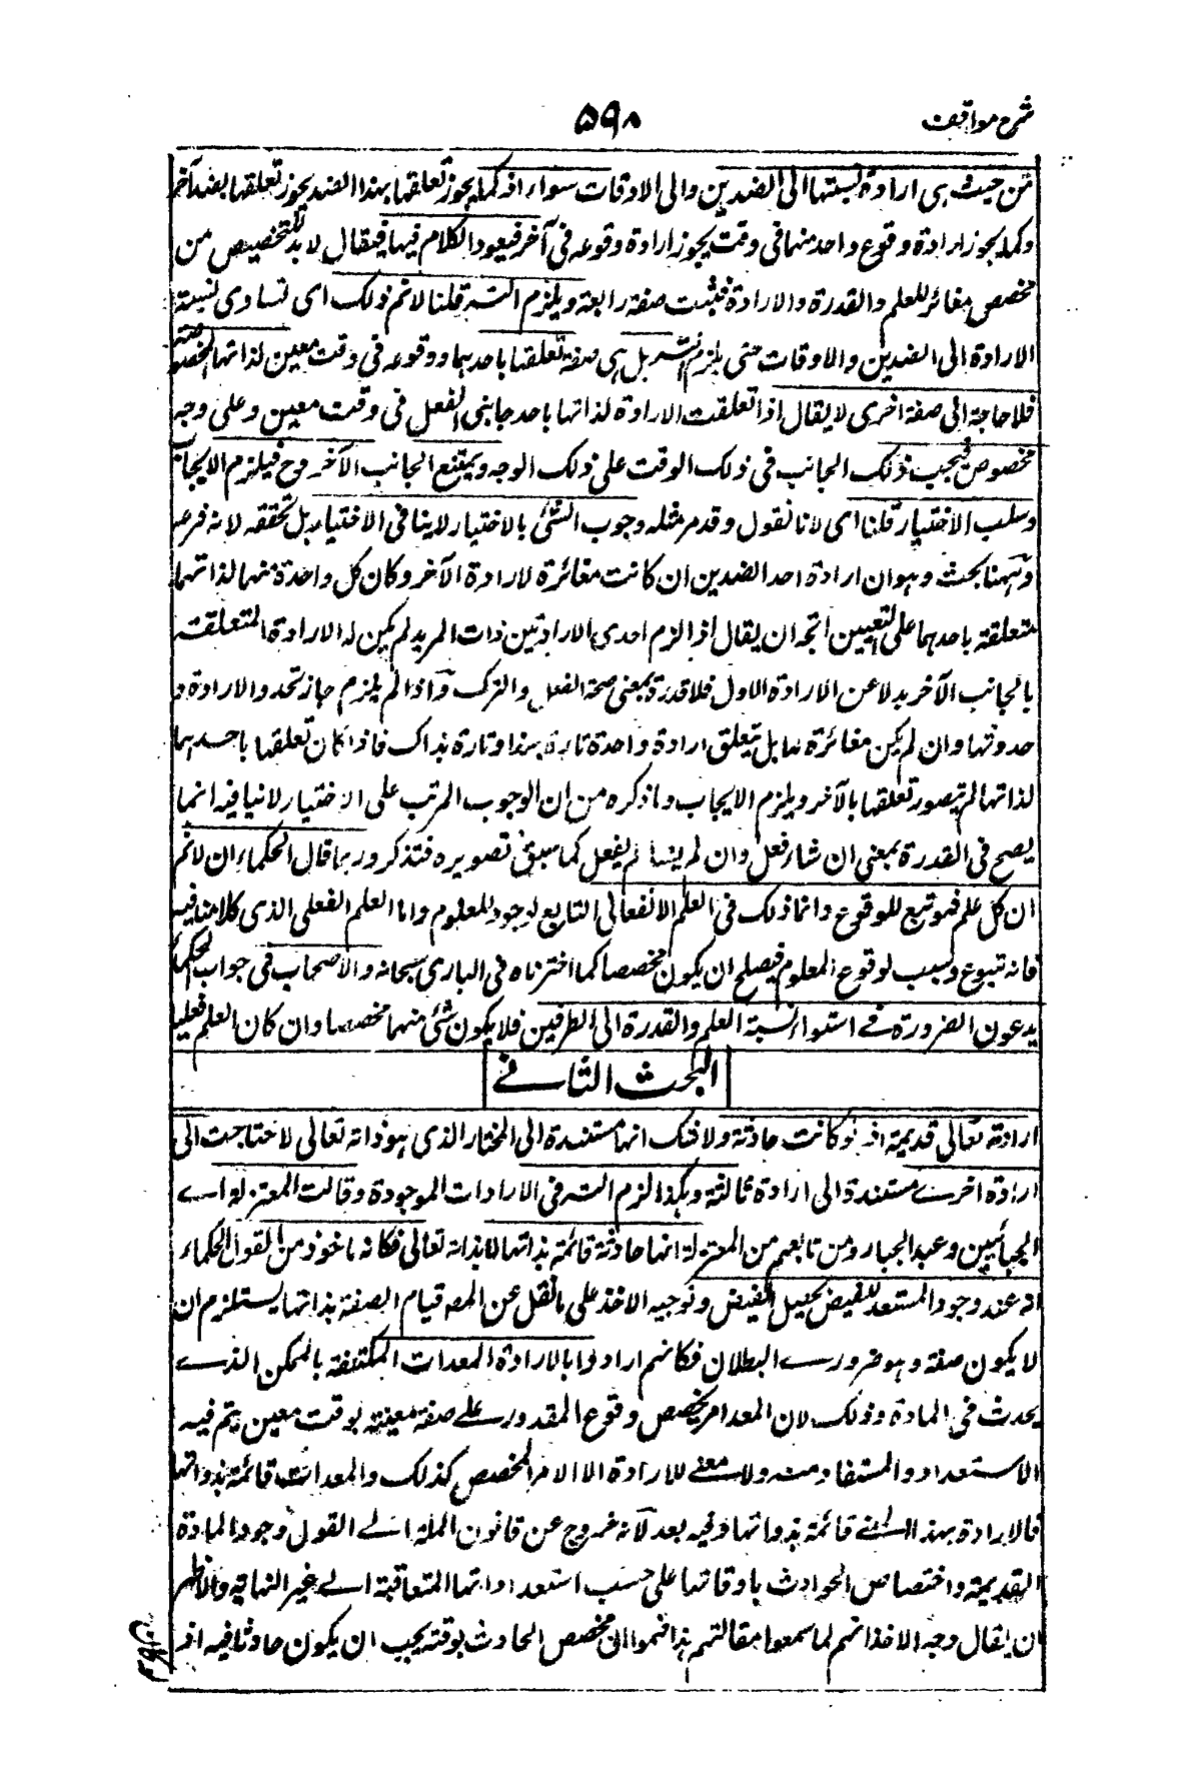 شرح مواقف
۵۹۸
من حیث ہی ارادۃ نسبتہا الی الضدین والی الاوقات سواء اذ کما یجوز تعلقہا بہذا الضد یجوز تعلقہا بضد آخر
وکما یجوز ارادۃ وقوع واحد منہما فی وقت یجوز ارادۃ وقوعہ فی آخر فیعود الکلام فیہا فیقال لا بد للتخصیص من
مخصص مغائر للعلم والقدرۃ والارادۃ فثبت صفۃ رابعۃ ویلزم التسہ قلنا لانم ذلک ای تساوی نسبۃ
الارادۃ الی الضدین والاوقات حتی یلزم التسہ بل ہی صفۃ تعلقہا باحدہما ووقوعہ فی وقت معین لذاتہا المخصصۃ
فلا حاجۃ الی صفۃ اخری لا یقال اذا تعلقت الارادۃ لذاتہا باحد جانبی الفعل فی وقت معین وعلی وجہ
مخصوص فیجب ذلک الجانب فی ذلک الوقت علی ذلک الوجہ ویمتنع الجانب الآخر وح فیلزم الایجاب
وسلب الاختیار قلنا ای لانا نقول وقد مر مثلہ وجوب الشئ بالاختیار لا ینافی الاختیار بل تحققہ لانہ فرعہ
وہہنا بحث وہو ان ارادۃ احد الضدین ان کانت مغائرۃ لارادۃ الآخر وکان کل واحدۃ منہما لذاتہما
متعلقۃ باحدہما علی التعیین اتجہ ان یقال اذا لزم احدی الارادتین ذات المرید لم یکن لہ الارادۃ المتعلقۃ
بالجانب الآخر بدلا عن الارادۃ الاول فلا قدرۃ بمعنی صحۃ الفعل والترک واذا لم یلزم جاز تحدد الارادۃ و
حدوثہا وان لم یکن مغائرۃ لہا بل یتعلق ارادۃ واحدۃ تارۃ بہذا وتارۃ بذاک فاذا کان تعلقہا باحدہما
لذاتہا لم یتصور تعلقہا بالآخر ویلزم الایجاب وما ذکرہ من ان الوجوب المرتب علی الاختیار لا ینافیہ انما
یصح فی القدرۃ بمعنی ان شاء فعل وان لم یشا لم یفعل کما سبق تصویرہ فتذکر وربما قال الحکماء ان لانم
ان کل علم فہو تبع للوقوع وانما ذلک فی العلم الانفعالی التابع لوجود المعلوم واما العلم الفعلی الذی کلامنا فیہ
فانہ متبوع وسبب لوقوع المعلوم فیصلح ان یکون مخصصا کما اخترناہ فی الباری سبحانہ والاصحاب فی جواب الحکماء
یدعون الضرورۃ فی استواء نسبۃ العلم والقدرۃ الی الطرفین فلا یکون شئ منہما مخصصا وان کان العلم فعلیا
البحث الثانی
ارادتہ تعالی قدیمۃ اذ لو کانت حادثۃ ولا شک انہا مستندۃ الی المختار الذی ہو ذاتہ تعالی لاحتاجت الی
ارادۃ اخری مستندۃ الی ارادۃ ثالثۃ وہکذا لزم التسہ فی الارادات الموجودۃ وقالت المعتزلۃ ای
الجبائیین وعبد الجبار ومن تابعہم من المعتزلۃ انہا حادثۃ قائمۃ بذاتہا لا بذاتہ تعالی فکانہ ماخوذ من القول الحکماء
انہ عند وجود المستعد للفیض یحصل الفیض وتوجیہ الاخذ علی ما نقل عن المصہ قیام الصفۃ بذاتہا یستلزم ان
لا یکون صفۃ وہو ضروری البطلان فکانہم ارادوا بالارادۃ المعدات المکتنفۃ بالممکن الذی
یحدث فی المادۃ وذلک لان المعد امر یخصص وقوع المقدور علی صفۃ معینۃ بوقت معین یتم فیہ
الاستعداد والمستفاد منہ ولا معنی للارادۃ الا الامر المخصص کذلک والمعدات قائمۃ بذواتہا
فالارادۃ بہذا المعنی قائمۃ بذواتہا وفیہ بعد لانہ خروج عن قانون الملۃ الی القول وجود المادۃ
القدیمۃ واختصاص الحوادث باوقاتہا علی حسب استعداداتہا المتعاقبۃ الی غیر النہایۃ والاظہر
ان یقال وجہ الاخذ انہم لما سمعوا مقالتہم ہذا ضموا الی مخصص الحادث بوقتہ یجب ان یکون حادثا فیہ اذ